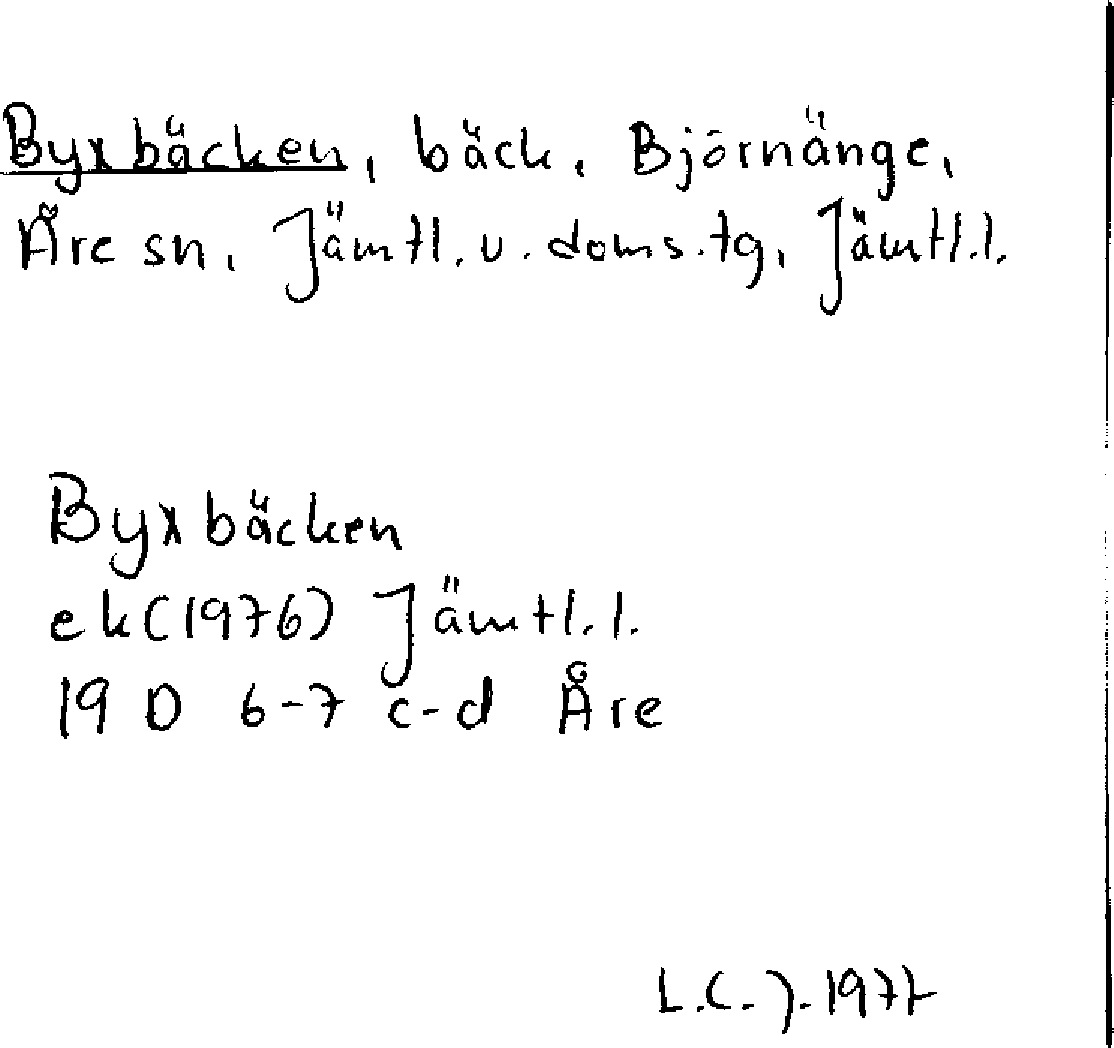 Byxbäcken, bäck, Björnänge,
Åre sn, Jämtl. v. doms.tg, Jämtl.l.
Byxbäcken
ek(1976) Jämtl.l.
19 D 6-7 c-d Åre
L.C.J. 1977